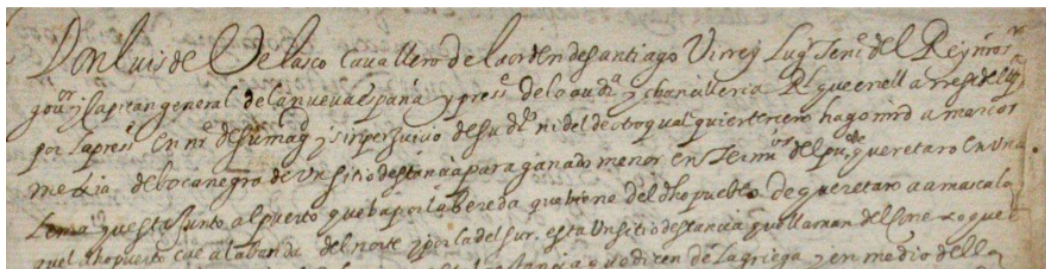 Don luis de Velasco Cavallero de la orden de santiago Virrey Lugr Tente del Rey nro sr
gouor y Capitan general de la nueva españa y preste de la audia y chancilleria Rl que en ella rreside etc
por la preste En ne de su magd y sin perjuicio de su dro ni del de otro qualquier tercero hago mrd a marcos
mexia de bocanegro de Un sitio destancia para ganado menor en Termos del puo de queretaro en Una
Loma questa Junto al puerto que ba por la bereda que biene del dho pueblo de queretaro a amascala
quel dho puerto cae a la banda del norte y por la del sur esta Un sitio destancia que llaman del conexo que
estancia que dicen de la griega y en medio della